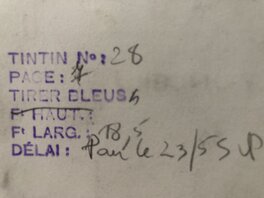 TINTIN No: 28
PAGE: 7
TIRER BLEUS
Ft HAUT.:
Ft LARG.: 18,5
DÉLAI: Pour le 23/5